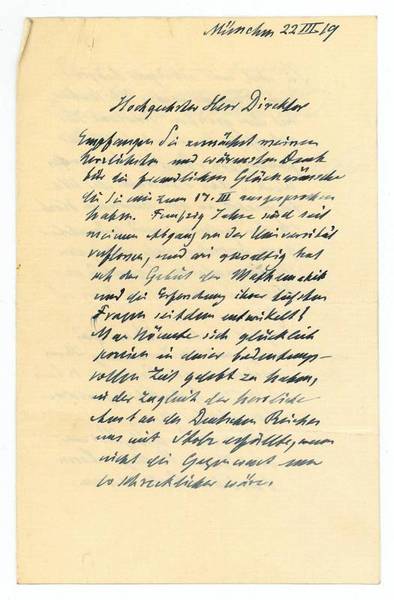 München 22 III 19
Hochgeehrter Herr Direktor
Empfangen Sie zunächst meinen
herzlichsten und wärmsten Dank
für die freundlichen Glückwünsche
die Sie mir zum 17. III ausgesprochen
haben. Funfzig Jahre sind seit
meinem Abgang von der Universität
verflossen, und wie gewaltig hat
sich das Gebiet der Mathematik
und die Erforschung ihrer tiefsten
Fragen seitdem entwickelt!
Man könnte sich glücklich
preisen in dieser bedeutungs-
vollen Zeit gelebt zu haben,
in der zugleich der herrliche
des Deutschen Reiches
uns mit Stolz erfüllte, wenn
nicht die Gegenwart nun
so schrecklicher wäre.